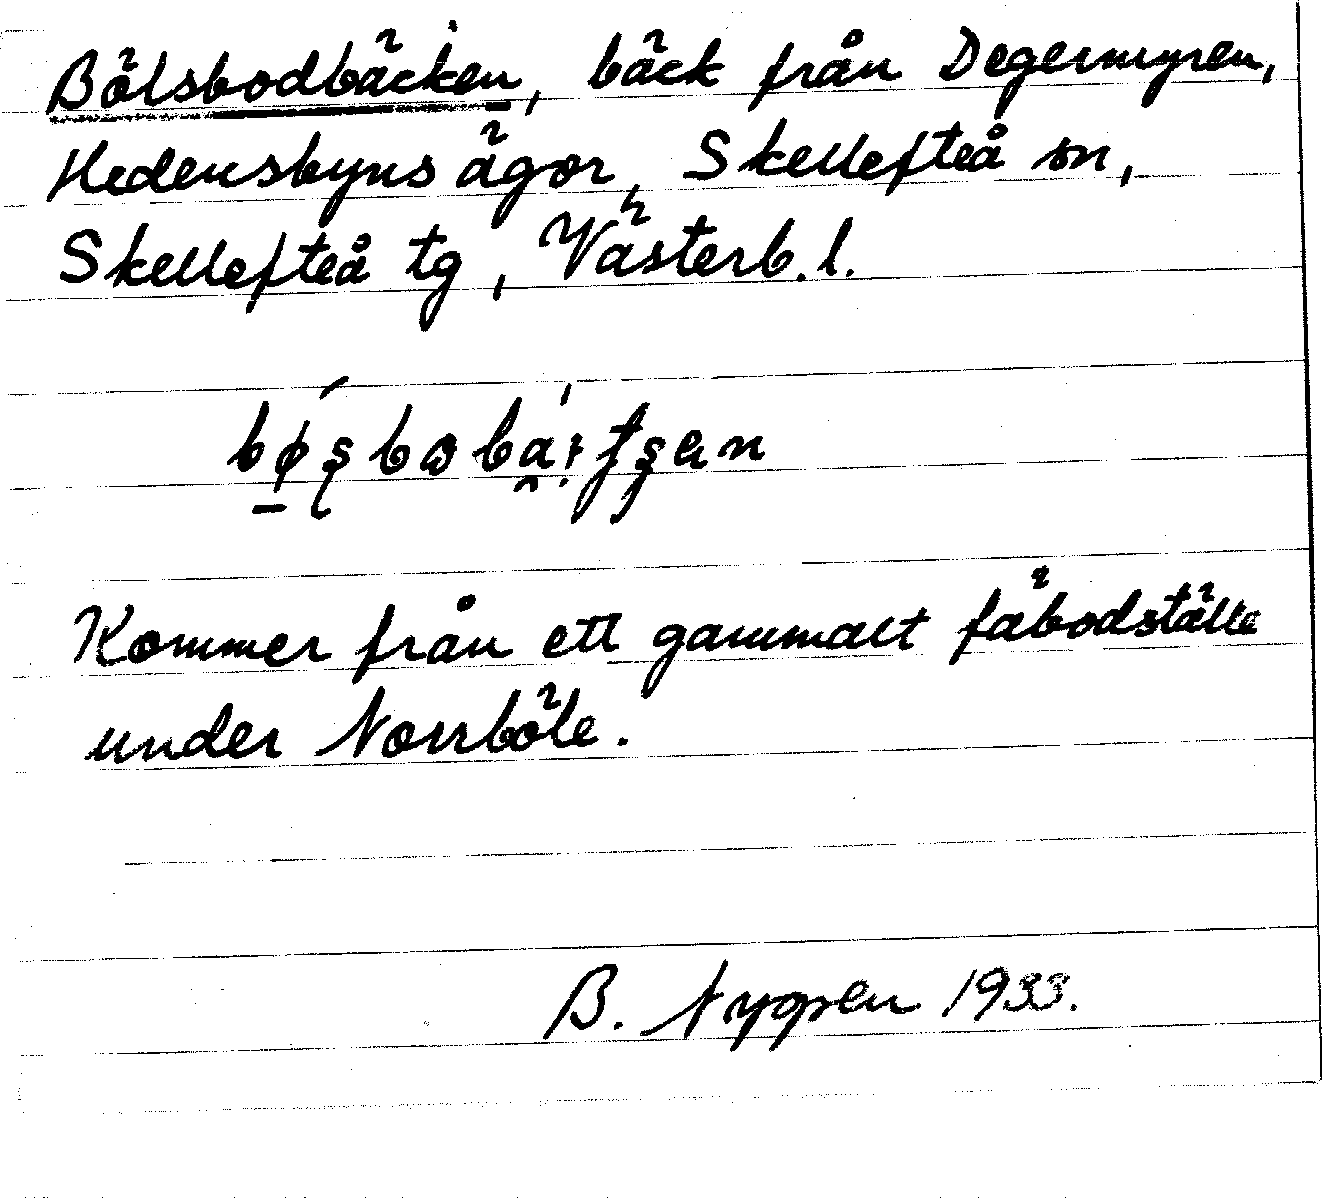 Bölsbodbäcken, bäck från Degermyren,
Hedensbyns ägor, Skellefteå sn,
Skellefteå tg, Västerb. l.
Kommer från ett gammalt fäbodställe
under Norrböle.
B. Nygren 1933.